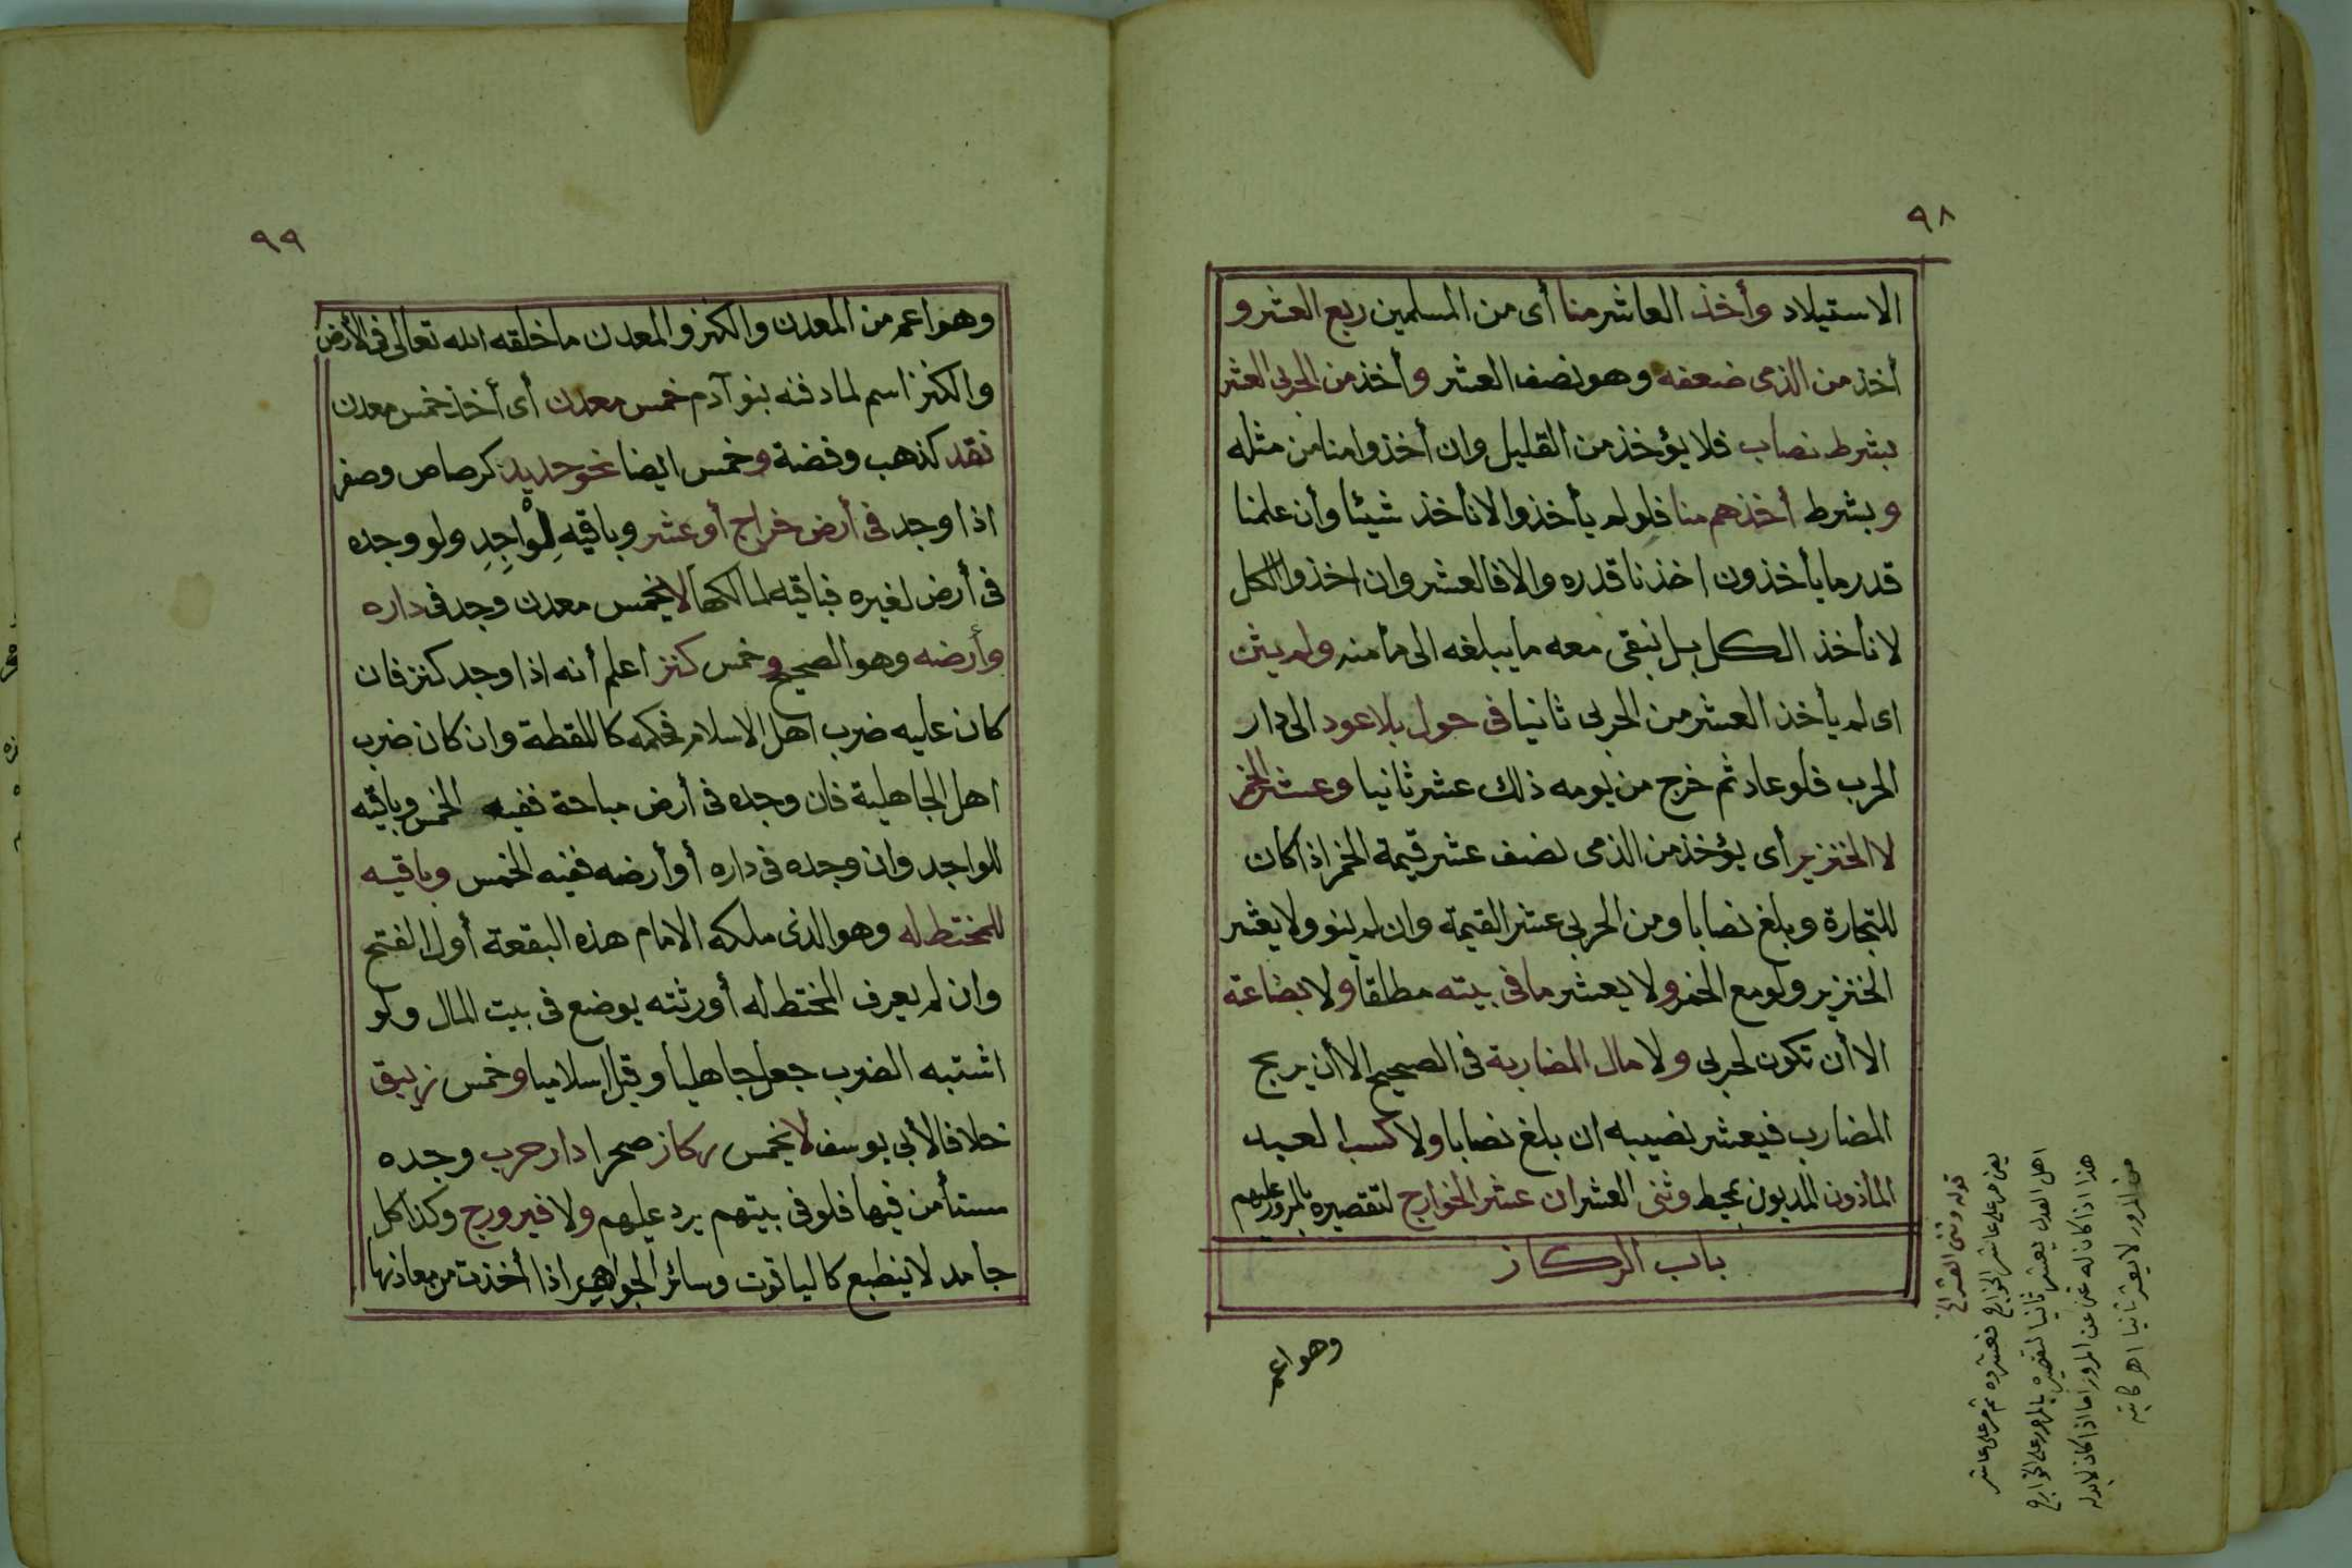 ٩٨
الاستيلاد وأخذ العاشر منا أى من المسلمين ربع العشر و
أخذ من الذمى ضعفه وهو نصف العشر وأخذ من الحربى العشر
بشرط نصاب فلا يؤخذ من القليل وان أخذوا منا من مثله
وبشرط أخذهم منا فلو لم يأخذوا لا نأخذ شيئا وأن علمنا
قدر ما يأخذون اخذنا قدره والا فالعشر وان اخذوا الكل
لا نأخذ الكل بل نبقى معه ما يبلغه الى مأمنه ولم يثن
اى لم يأخذ العشر من الحربى ثانيا فى حول بلا عود الى دار
الحرب فلو عاد ثم خرج من يومه ذلك عشر ثانيا وعشر الخمر
لا الخنزير أى يؤخذ من الذمى نصف عشر قيمة الخمر اذا كان
للتجارة وبلغ نصابا ومن الحربى عشر القيمة وان لم ينو ولا يعشر
الخنزير ولو مع الخمر ولا يعشر ما فى بيته مطلقا ولا بضاعة
الا أن تكون لحربى ولا مال المضاربة فى الصحيح الا أن يربح
المضارب فيعشر نصيبه ان بلغ نصابا ولا كسب العبد
المأذون المديون بمحيط وثنى العشر ان عشر الخوارج لتقصيره بالمرور عليهم
باب الركاز
وهو اعم
قوله وثنى العشر الخ
يعنى مر على عاشر الخوارج فعشروه ثم مر على عاشر
اهل العدل يعشر ثانيا لتقصيره بالمرور على الخوارج
هذا اذا كان له غنى عن المرور اما اذا كان لا بد له
من المرور لا يعشر ثانيا اهر كاتبه
٩٩
وهو اعم من المعدن والكنز والمعدن ما خلقه الله تعالى فى الأرض
والكنز اسم لما دفنه بنو آدم خمس معدن أى أخذ خمس معدن
نقد كذهب وفضة وخمس ايضا نحو حديد كرصاص وصفر
اذا وجد فى أرض خراج أو عشر وباقيه لِلْواجِدِ ولو وجده
فى أرض لغيره فباقيه لمالكها لا يخمس معدن وجد فى داره
وأرضه وهو الصحيح وخمس كنز اعلم أنه اذا وجد كنز فان
كان عليه ضرب اهل الاسلام فحكمه كاللقطة وان كان ضرب
اهل الجاهلية فان وجده فى أرض مباحة ففيه الخمس وباقيه
للواجد وان وجده فى داره أو أرضه ففيه الخمس وباقيه
للمختط له وهو الذى ملكه الامام هذه البقعة أول الفتح
وان لم يعرف المختط له أو ورثته يوضع فى بيت المال ولو
اشتبه الضرب جعل جاهليا وقيل اسلاميا وخمس زيبق
خلافا لأبى يوسف لا يخمس ركاز صحرا دار حرب وجده
مستأمن فيها فلو فى بيتهم يرد عليهم ولا فيروزج وكذا كل
جامد لا ينطبع كالياقوت وسائر الجواهر اذا أخذت من معادنها